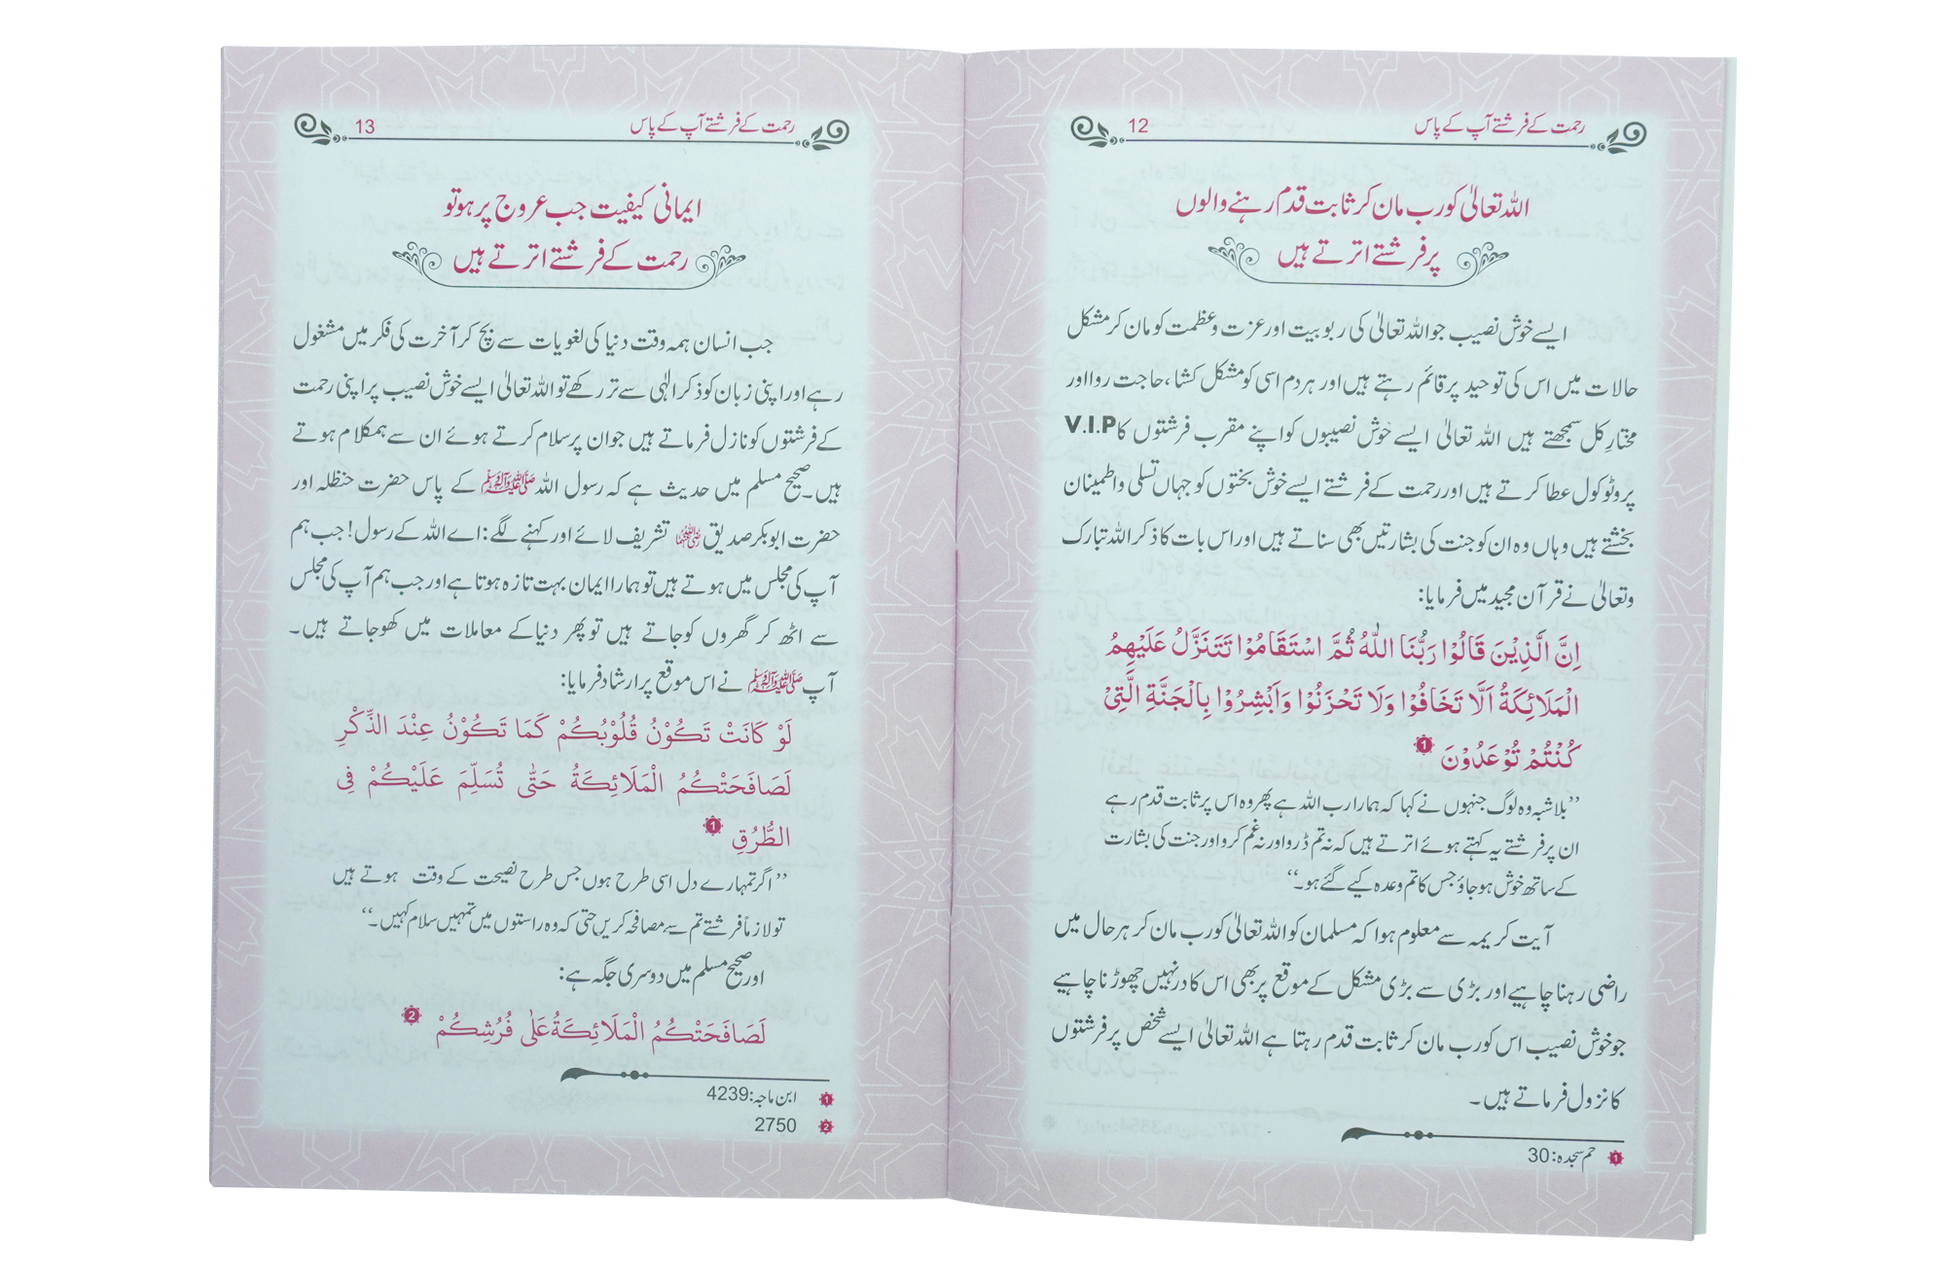 رحمت کے فرشتے آپ کے پاس 12
اللہ تعالیٰ کو رب مان کر ثابت قدم رہنے والوں
پر فرشتے اترتے ہیں
ایسے خوش نصیب جو اللہ تعالیٰ کی ربوبیت اور عزت و عظمت کو مان کر مشکل
حالات میں اس کی توحید پر قائم رہتے ہیں اور ہر دم اسی کو مشکل کشا، حاجت روا اور
مختارِ کل سمجھتے ہیں اللہ تعالیٰ ایسے خوش نصیبوں کو اپنے مقرب فرشتوں کا V.I.P
پروٹوکول عطا کرتے ہیں اور رحمت کے فرشتے ایسے خوش بختوں کو جہاں تسلی و اطمینان
بخشتے ہیں وہاں وہ ان کو جنت کی بشارتیں بھی سناتے ہیں اور اس بات کا ذکر اللہ تبارک
و تعالیٰ نے قرآن مجید میں فرمایا:
اِنَّ الَّذِيْنَ قَالُوْا رَبُّنَا اللّٰهُ ثُمَّ اسْتَقَامُوْا تَتَنَزَّلُ عَلَيْهِمُ
الْمَلَائِكَةُ اَلَّا تَخَافُوْا وَلَا تَحْزَنُوْا وَاَبْشِرُوْا بِالْجَنَّةِ الَّتِىْ
كُنْتُمْ تُوْعَدُوْنَ 1
’’بلاشبہ وہ لوگ جنہوں نے کہا کہ ہمارا رب اللہ ہے پھر وہ اس پر ثابت قدم رہے
ان پر فرشتے یہ کہتے ہوئے اترتے ہیں کہ نہ تم ڈرو اور نہ غم کرو اور جنت کی بشارت
کے ساتھ خوش ہو جاؤ جس کا تم وعدہ کیے گئے ہو۔‘‘
آیت کریمہ سے معلوم ہوا کہ مسلمان کو اللہ تعالیٰ کو رب مان کر ہر حال میں
راضی رہنا چاہیے اور بڑی سے بڑی مشکل کے موقع پر بھی اس کا در نہیں چھوڑنا چاہیے
جو خوش نصیب اس کو رب مان کر ثابت قدم رہتا ہے اللہ تعالیٰ ایسے شخص پر فرشتوں
کا نزول فرماتے ہیں۔
1 حم سجدہ: 30
رحمت کے فرشتے آپ کے پاس 13
ایمانی کیفیت جب عروج پر ہو تو
رحمت کے فرشتے اترتے ہیں
جب انسان ہمہ وقت دنیا کی لغویات سے بچ کر آخرت کی فکر میں مشغول
رہے اور اپنی زبان کو ذکر الٰہی سے تر رکھے تو اللہ تعالیٰ ایسے خوش نصیب پر اپنی رحمت
کے فرشتوں کو نازل فرماتے ہیں جو ان پر سلام کرتے ہوئے ان سے ہمکلام ہوتے
ہیں۔ صحیح مسلم میں حدیث ہے کہ رسول اللہ ﷺ کے پاس حضرت حنظلہ اور
حضرت ابوبکر صدیق رضی اللہ عنہما تشریف لائے اور کہنے لگے: اے اللہ کے رسول! جب ہم
آپ کی مجلس میں ہوتے ہیں تو ہمارا ایمان بہت تازہ ہوتا ہے اور جب ہم آپ کی مجلس
سے اٹھ کر گھروں کو جاتے ہیں تو پھر دنیا کے معاملات میں کھو جاتے ہیں۔
آپ ﷺ نے اس موقع پر ارشاد فرمایا:
لَوْ كَانَتْ تَكُوْنُ قُلُوْبُكُمْ كَمَا تَكُوْنُ عِنْدَ الذِّكْرِ
لَصَافَحَتْكُمُ الْمَلَائِكَةُ حَتّٰى تُسَلِّمَ عَلَيْكُمْ فِى
الطُّرُقِ 1
’’اگر تمہارے دل اسی طرح ہوں جس طرح نصیحت کے وقت ہوتے ہیں
تو لازماً فرشتے تم سے مصافحہ کریں حتی کہ وہ راستوں میں تمہیں سلام کہیں۔‘‘
اور صحیح مسلم میں دوسری جگہ ہے:
لَصَافَحَتْكُمُ الْمَلَائِكَةُ عَلٰى فُرُشِكُمْ 2
1 ابن ماجہ: 4239
2 2750